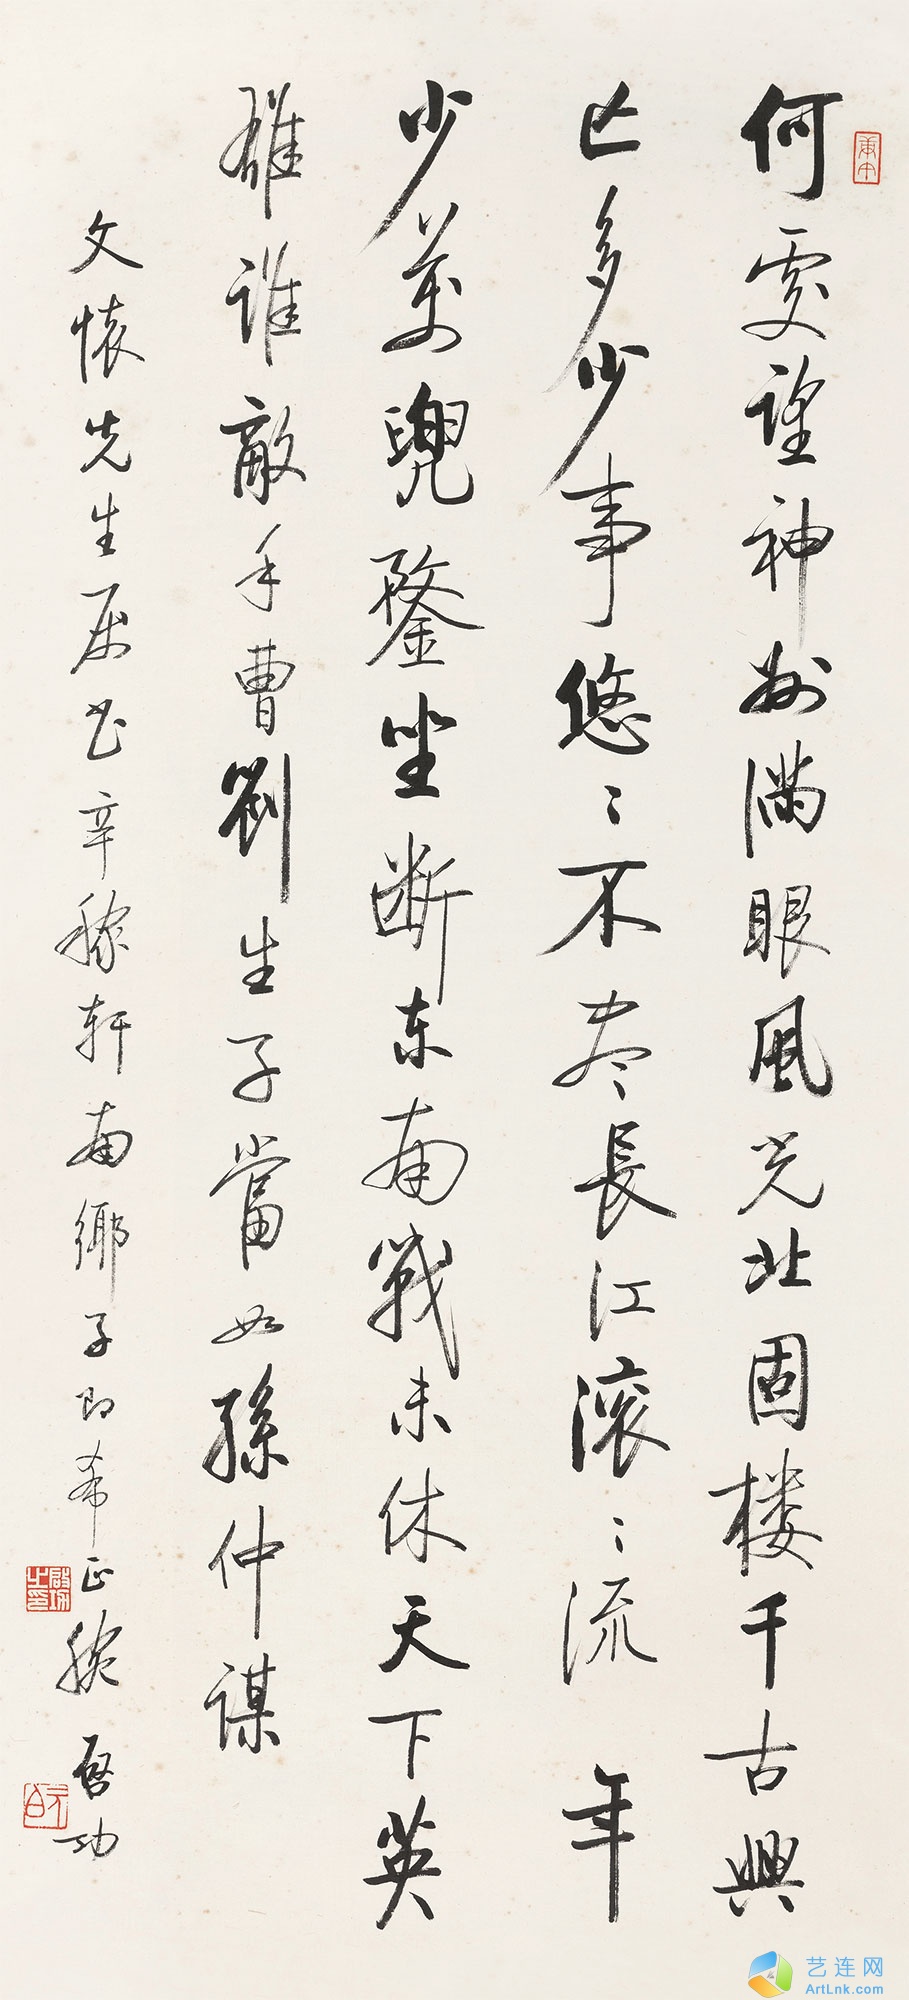 何處望神州滿眼風光北固楼千古興
亡多少事悠〻不盡長江滚〻流 年
少萬兜鍪坐断东南戰未休天下英
雄誰敵手曹劉生子當如孫仲謀
文懷先生属书辛稼轩南鄉子即希正腕 启功
啟功之印
元白
艺连网
ArtLnk.com